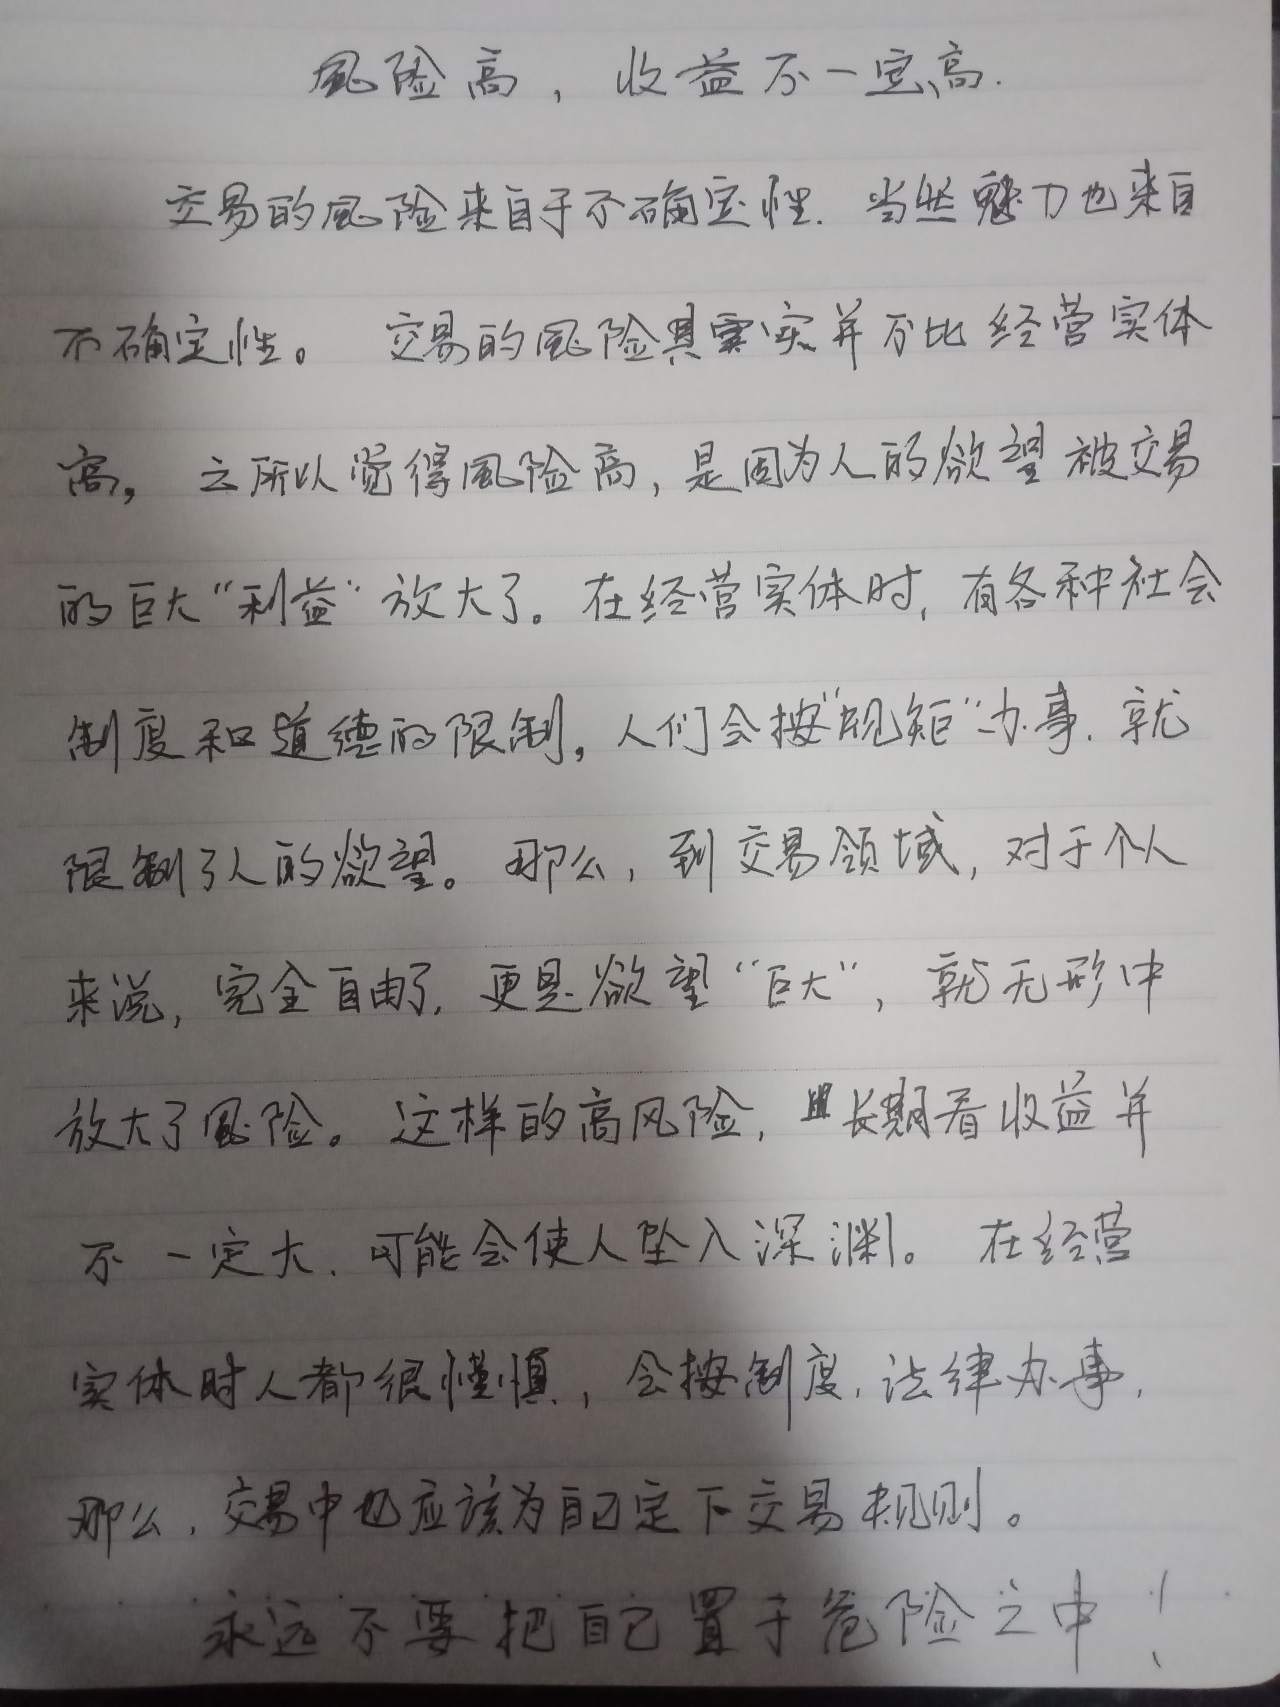 風险高，收益不一定高.
交易的風险来自于不确定性.当然魅力也来自
不确定性。交易的風险其实并不比经营实体
高，之所以觉得風险高，是因为人的欲望被交易
的巨大“利益”放大了。在经营实体时，有各种社会
制度和道德的限制，人们会按“规矩”办事.就
限制了人的欲望。那么，到交易领域，对于个人
来说，完全自由了，更是欲望“巨大”，就无形中
放大了風险。这样的高风险，且长期看收益并
不一定大.可能会使人坠入深渊。在经营
实体时人都很慬慎，会按制度.法律办事，
那么，交易中也应该为自己定下交易规则。
永远不要把自己置于危险之中！